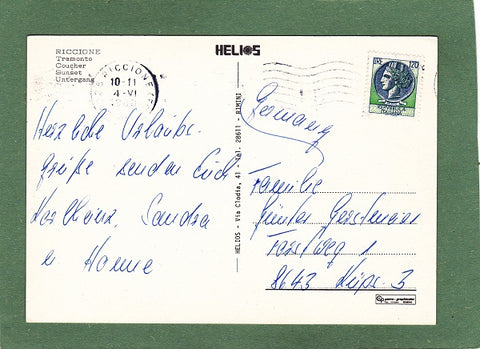 RICCIONE
Tramonto
Coucher
Sunset
Untergang
HELIOS
RICCIONE
10-11
4-VI
LIRE 120
Herzliche Urlaubs-
grüße senden Euch
Karlheinz, Sandra
u
HELIOS - Via Clodia, 41 - Tel. 28611 - RIMINI
Germany
Familie
Günter Gerstenar
Forstweg 1
8643 Küps. 3